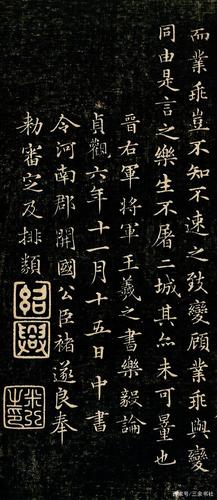 而業乖豈不知不速之致變顧業乖與變
同由是言之樂生不屠二城其亦未可量也
晉右軍將軍王羲之書樂毅論
貞觀六年十一月十五日中書
令河南郡開國公臣褚遂良奉
勅審定及排類
紹興